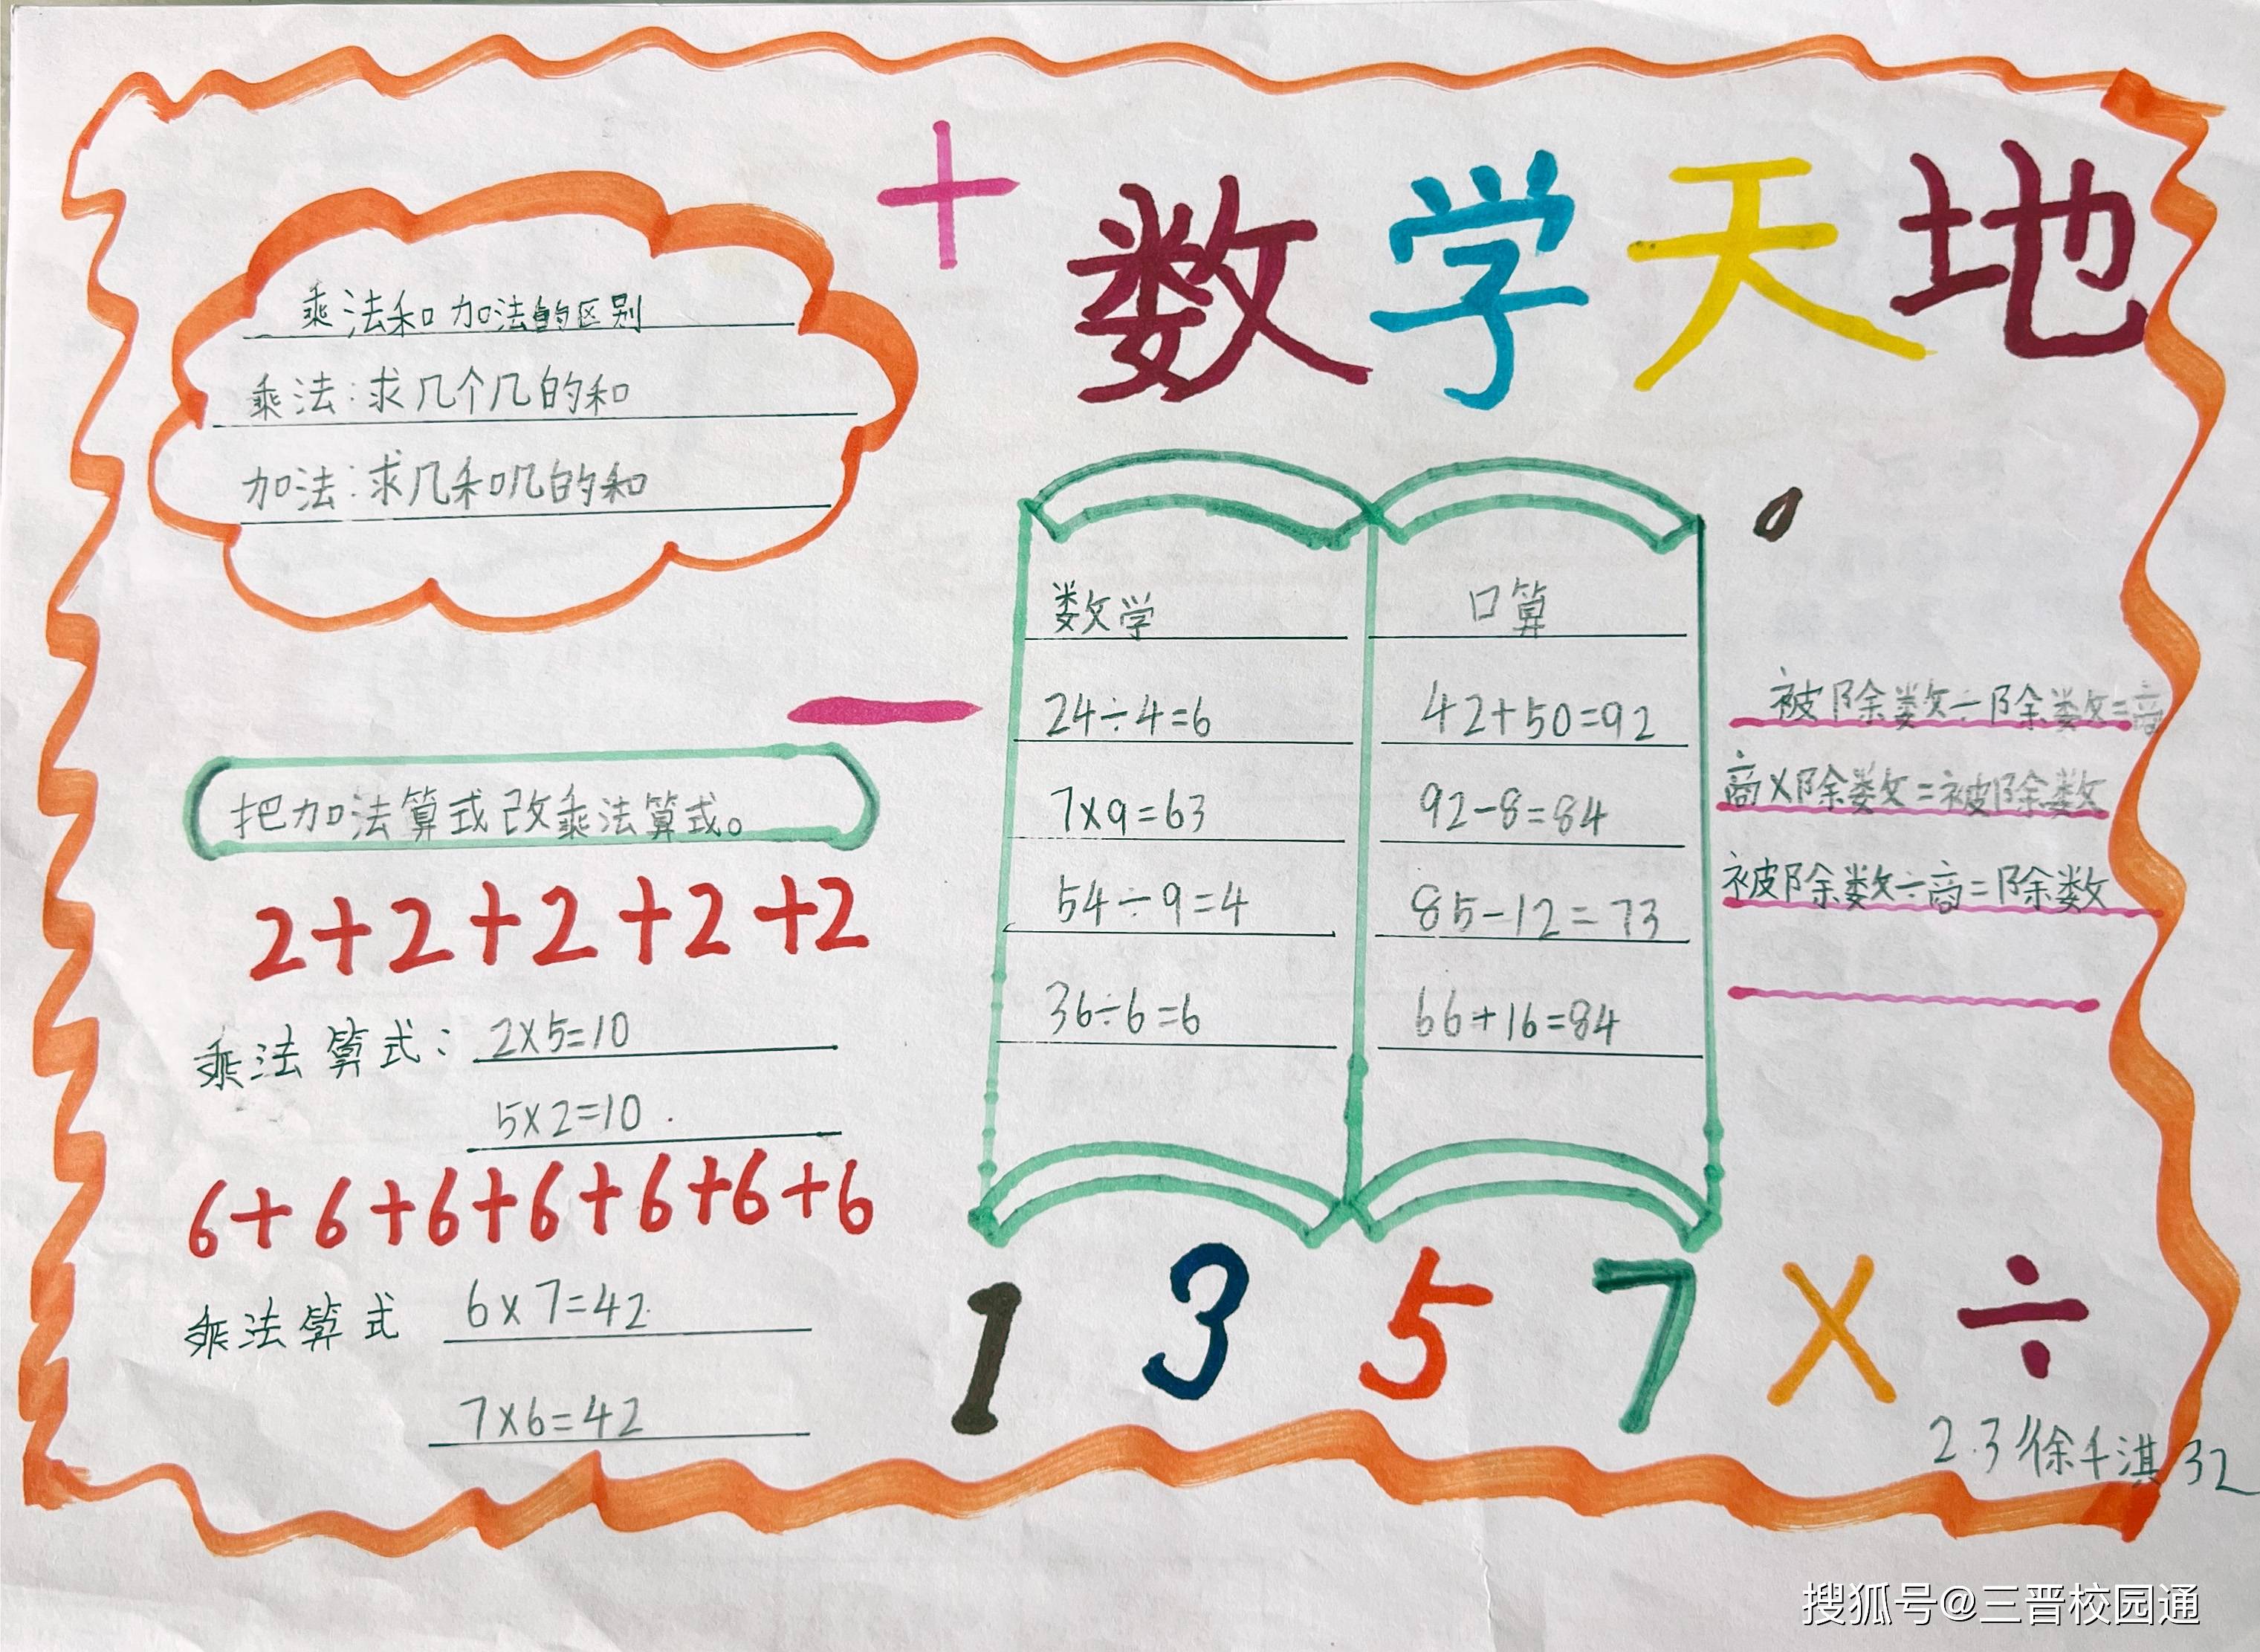 +
数学天地
乘法和加法的区别
乘法:求几个几的和
加法:求几和几的和
数学
24÷4=6
7×9=63
54÷9=4
36÷6=6
口算
42+50=92
92-8=84
85-12=73
66+16=84
被除数÷除数=商
商×除数=被除数
被除数÷商=除数
把加法算式改乘法算式。
2+2+2+2+2
乘法算式: 2×5=10
5×2=10
6+6+6+6+6+6+6
乘法算式 6×7=42
7×6=42
1 3 5 7 × ÷
2.3 徐千淇 32
搜狐号@三晋校园通